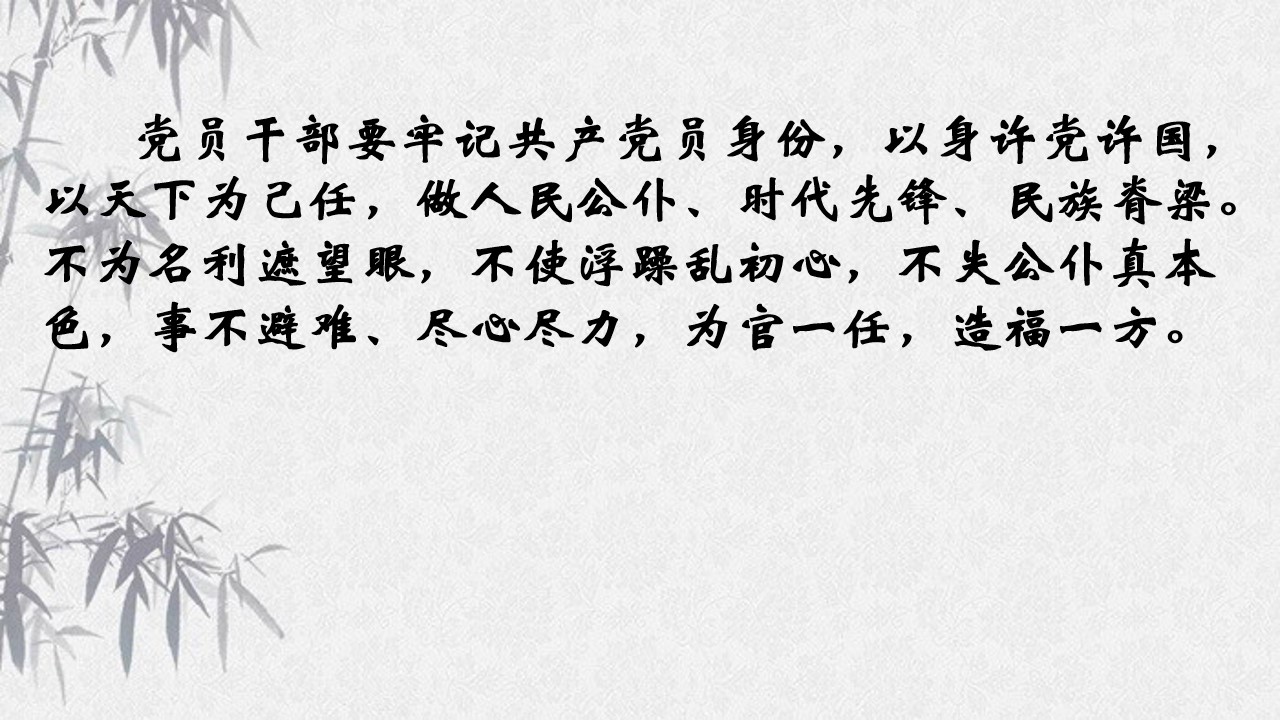 党员干部要牢记共产党员身份，以身许党许国，
以天下为己任，做人民公仆、时代先锋、民族脊梁。
不为名利遮望眼，不使浮躁乱初心，不失公仆真本
色，事不避难、尽心尽力，为官一任，造福一方。